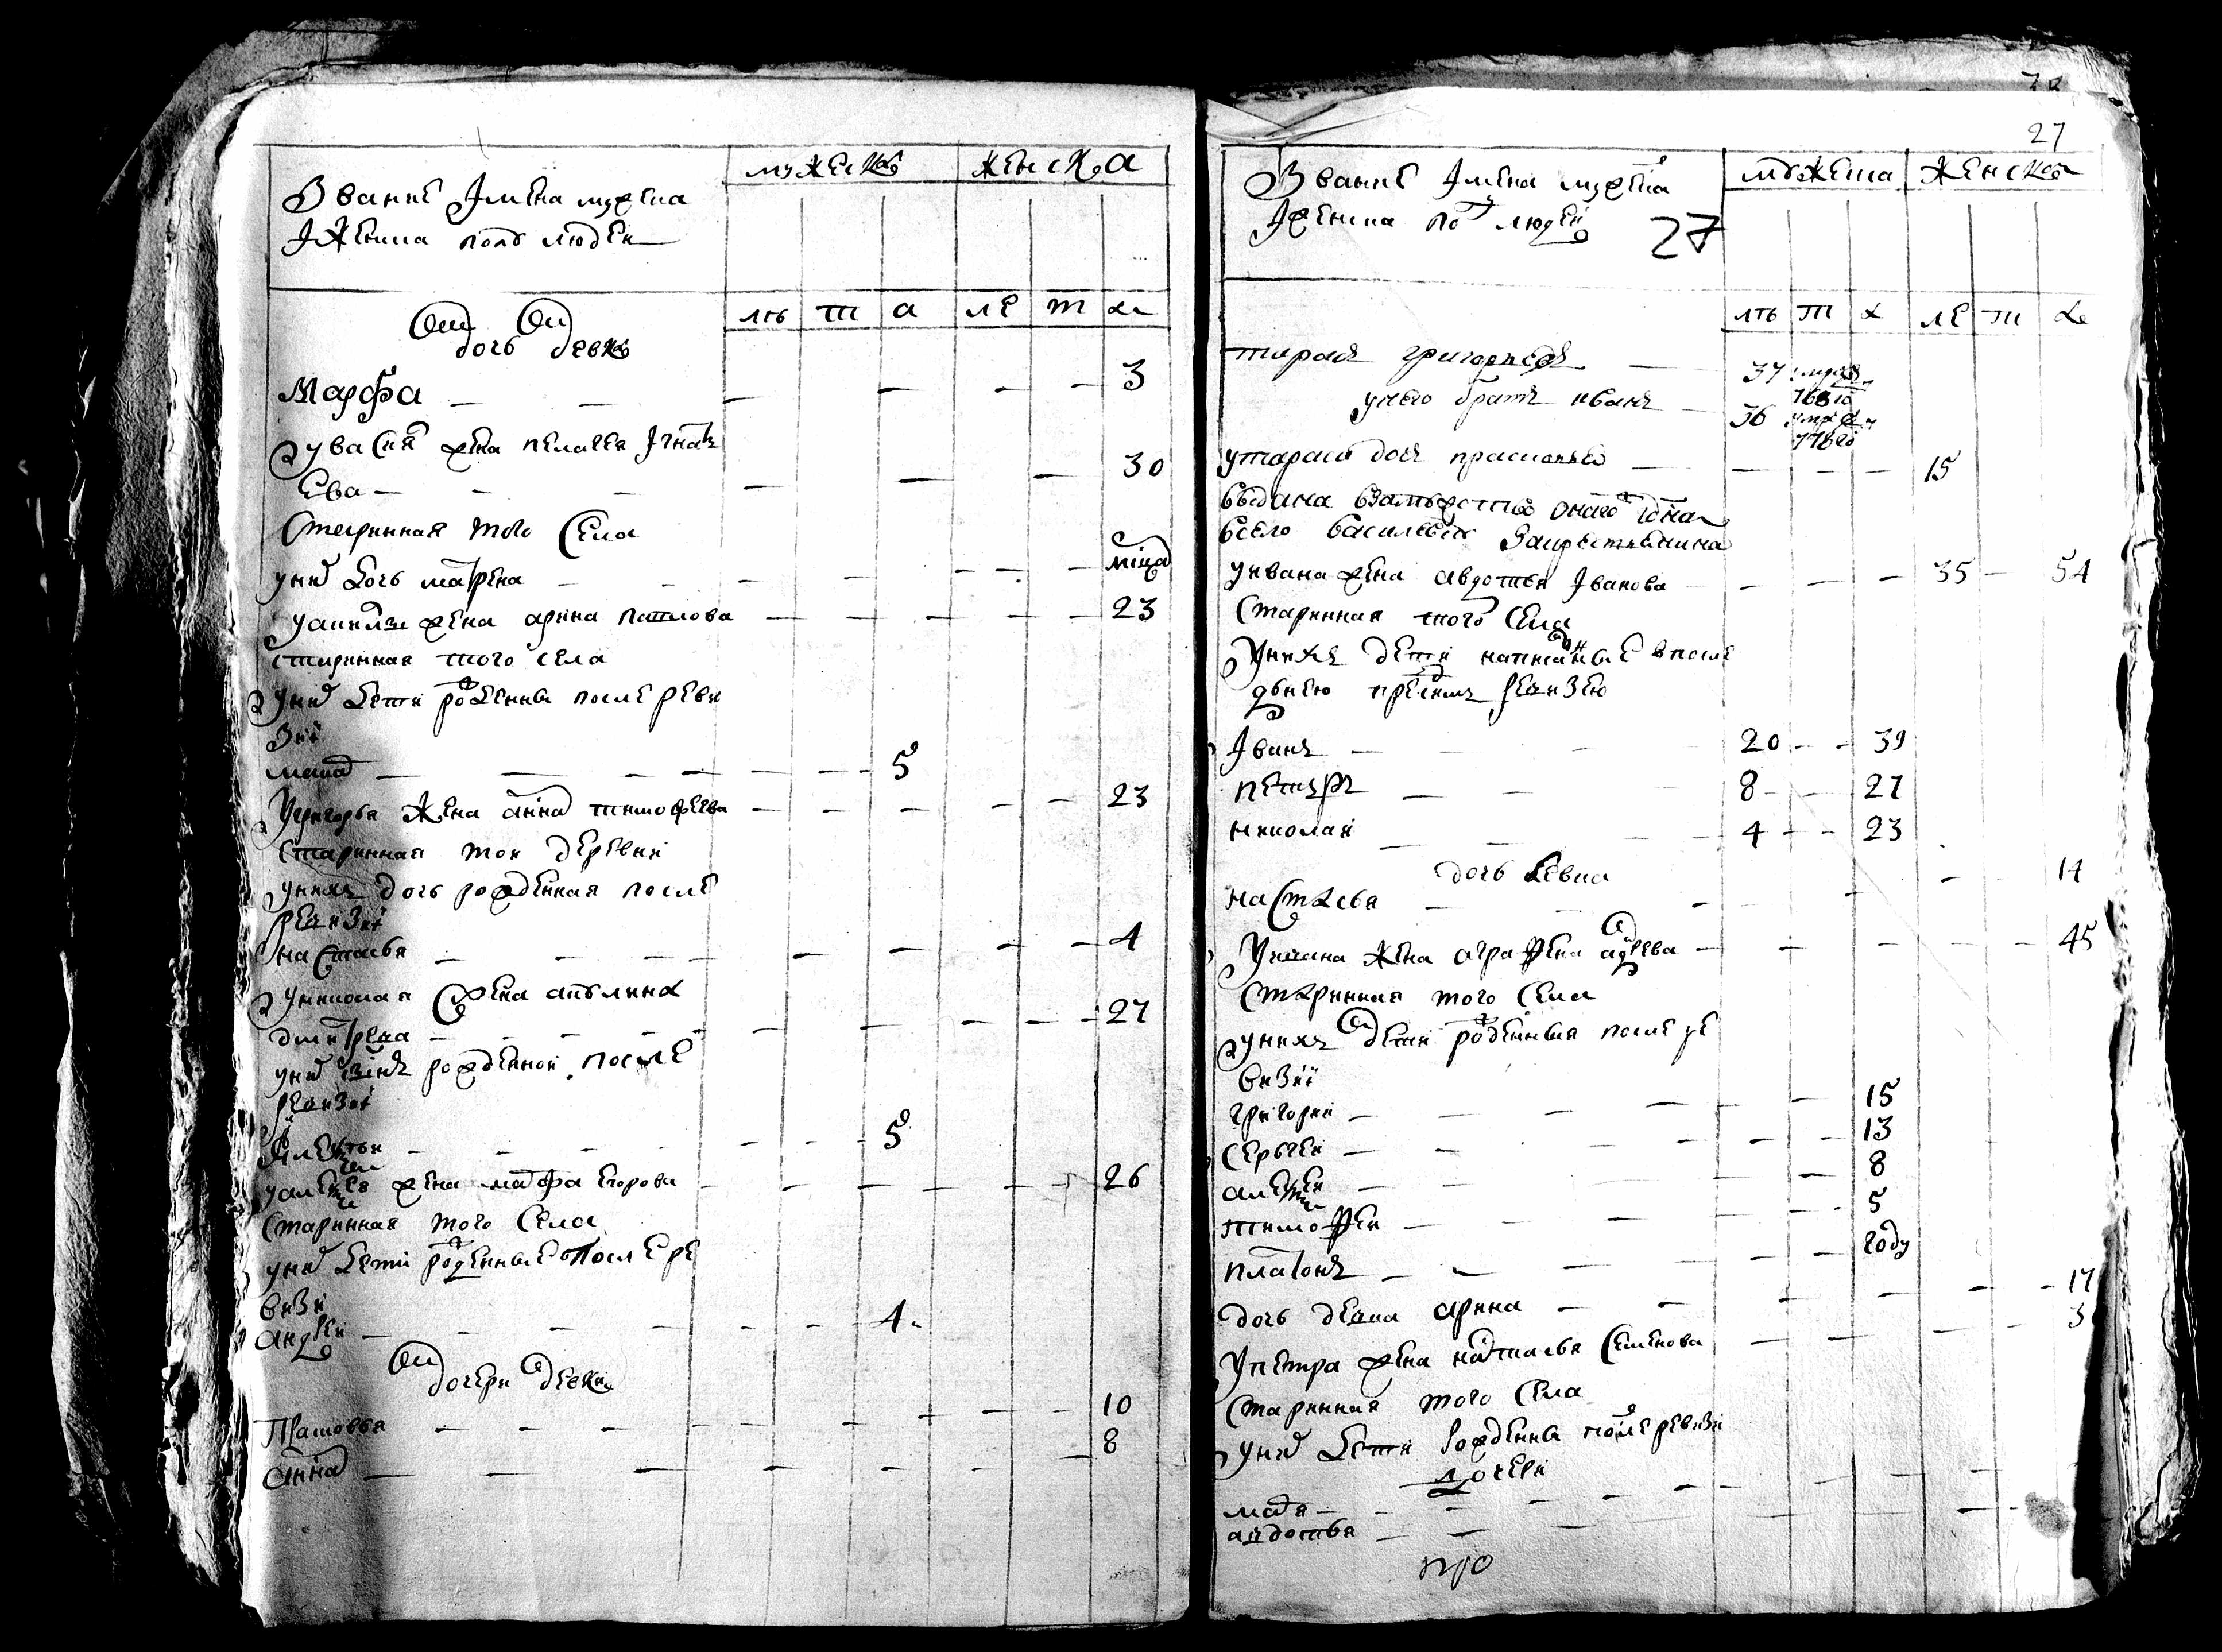 Звание Имена мужеска
Iженска полъ людеи
мужеска женска
лѣ т а ле т а
дочь девка
Марфа 3
уВасиля жена пелагея Iгнать
Ева 30
Старинная того Села
унихъ дочь матрена
жена арина павлова 23
старинная того села
унихъ дети рожденны после реви
зиi
5
Угригорья Жена анна тимофеева 23
Старинная тои деревни
унихъ дочь рожденная после
ревизиi
настасья 4
униколая жена
дмитрева 27
унихъ сынъ рожденнои после
ревизиi
5
жена марфа егорова 26
Старинная того Села
унихъ дети рожденные После ре
визи
андреи 4
дочери девки
10
анна 8
27
Звание Iмена мужеска
Iженска по людеи 27
мужеска Женска
лѣ т а ле т а
тарасъ григорьевъ 37
унего братъ иванъ 36
утараса дочь прасковья 15
выдана взамужство
всело
уивана жена авдотья Iванова 35 54
Старинная того Села
Унихъ дети написанные впосле
днею пред симъ ревизию
Iванъ 20 39
петръ 8 27
николаи 4 23
дочь девка
настасья 14
Уивана Жена аграфена 45
Старинная того Села
унихъ дети рожденныя после ре
визиi
григореи 15
Сергеи 13
алексеи 8
тимофеи 5
платонъ году
дочь девка арина 17
Упетра жена наталья Семенова 3
Старинная того Села
унихъ дети рожденны после ревизи
дочери
авдотья